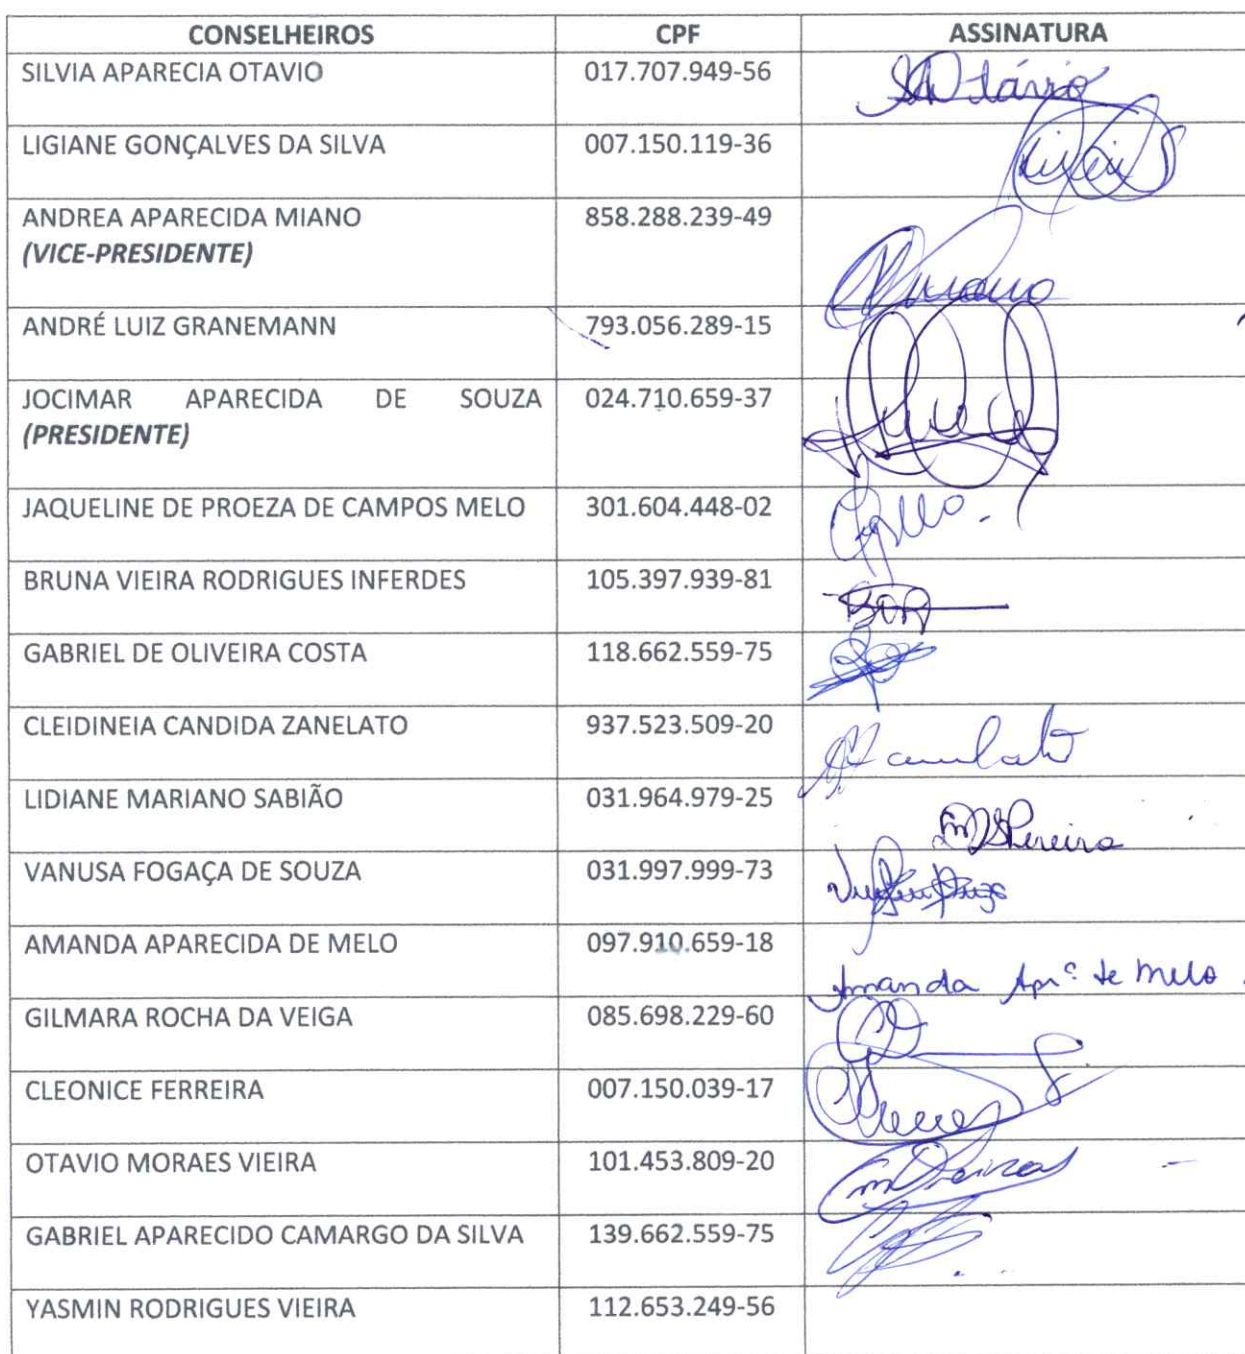 CONSELHEIROS CPF ASSINATURA
SILVIA APARECIA OTAVIO 017.707.949-56 SAOtávio
LIGIANE GONÇALVES DA SILVA 007.150.119-36
ANDREA APARECIDA MIANO 858.288.239-49
(VICE-PRESIDENTE)
ANDRÉ LUIZ GRANEMANN 793.056.289-15
JOCIMAR APARECIDA DE SOUZA 024.710.659-37
(PRESIDENTE)
JAQUELINE DE PROEZA DE CAMPOS MELO 301.604.448-02
BRUNA VIEIRA RODRIGUES INFERDES 105.397.939-81
GABRIEL DE OLIVEIRA COSTA 118.662.559-75
CLEIDINEIA CANDIDA ZANELATO 937.523.509-20
LIDIANE MARIANO SABIÃO 031.964.979-25
VANUSA FOGAÇA DE SOUZA 031.997.999-73
AMANDA APARECIDA DE MELO 097.910.659-18 Amanda Apª de Melo
GILMARA ROCHA DA VEIGA 085.698.229-60
CLEONICE FERREIRA 007.150.039-17
OTAVIO MORAES VIEIRA 101.453.809-20
GABRIEL APARECIDO CAMARGO DA SILVA 139.662.559-75
YASMIN RODRIGUES VIEIRA 112.653.249-56